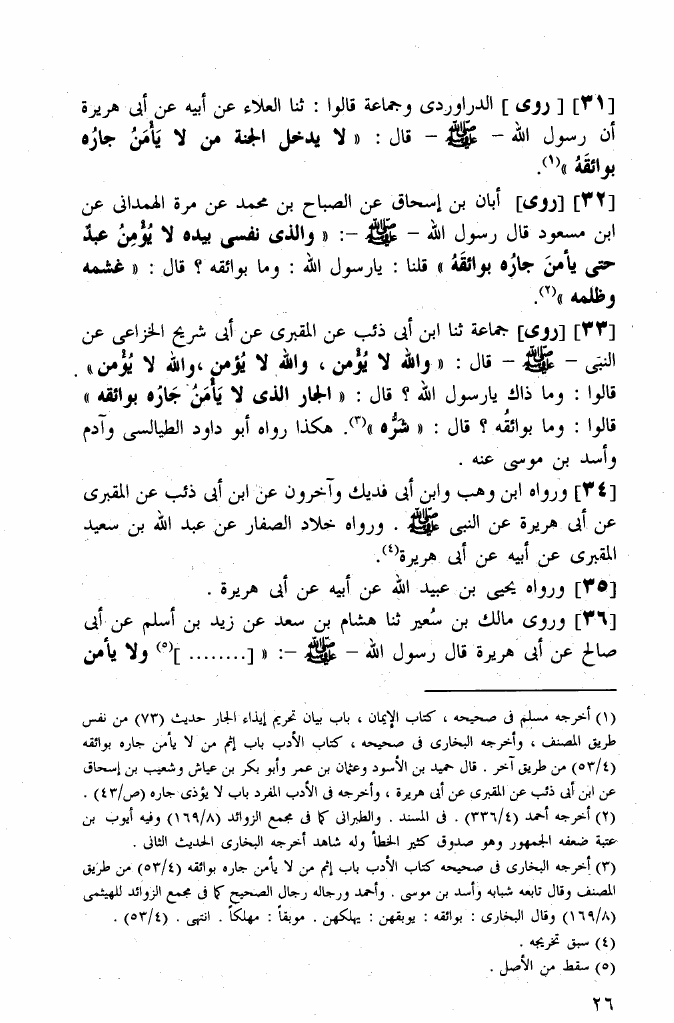 [٣١] [ روى ] الدراوردى وجماعة قالوا : ثنا العلاء عن أبيه عن أبى هريرة
أن رسول الله – ﷺ – قال : « لا يدخل الجنة من لا يَأْمَنُ جارُه
بوائقَهُ »(١).
[٣٢] [روى] أبان بن إسحاق عن الصباح بن محمد عن مرة الهمدانى عن
ابن مسعود قال رسول الله – ﷺ –: « والذى نفسى بيده لا يُؤْمِنُ عبدٌ
حتى يأمنَ جارُه بوائقَهُ » قلنا : يارسول الله : وما بوائقه ؟ قال : « غشمه
وظلمه »(٢).
[٣٣] [روى] جماعة ثنا ابن أبى ذئب عن المقبرى عن أبى شريح الخزاعى عن
النبى – ﷺ – قال : « والله لا يُؤْمن ، والله لا يُؤمن ،والله لا يُؤْمن» .
قالوا : وما ذاك يارسول الله ؟ قال : « الجار الذى لا يَأْمَنُ جَارُه بوائقه »
قالوا : وما بوائقُه ؟ قال : « شَرُّه »(٣). هكذا رواه أبو داود الطيالسى وآدم
وأسد بن موسى عنه .
[٣٤] ورواه ابن وهب وابن أبى فديك وآخرون عن ابن أبى ذئب عن المقبرى
عن أبى هريرة عن النبى ﷺ . ورواه خلاد الصفار عن عبد الله بن سعيد
المقبرى عن أبيه عن أبى هريرة(٤).
[٣٥] ورواه يحيى بن عبيد الله عن أبيه عن أبى هريرة .
[٣٦] وروى مالك بن سُعير ثنا هشام بن سعد عن زيد بن أسلم عن أبى
صالح عن أبى هريرة قال رسول الله – ﷺ –: « [........ ](٥) ولا يأمن
(١) أخرجه مسلم فى صحيحه ، كتاب الإيمان ، باب بيان تحريم إيذاء الجار حديث (٧٣) من نفس
طريق المصنف ، وأخرجه البخارى فى صحيحه ، كتاب الأدب باب إثم من لا يأمن جاره بوائقه
(٥٣/٤) من طريق آخر . قال حميد بن الأسود وعثمان بن عمر وأبو بكر بن عياش وشعيب بن إسحاق
عن ابن أبى ذئب عن المقبرى عن أبى هريرة ، وأخرجه فى الأدب المفرد باب لا يؤذى جاره (ص/٤٣) .
(٢) أخرجه أحمد (٣٣٦/٤) . فى المسند . والطبرانى كما فى مجمع الزوائد (١٦٩/٨) وفيه أيوب بن
عتبة ضعفه الجمهور وهو صدوق كثير الخطأ وله شاهد أخرجه البخارى الحديث الثانى .
(٣) أخرجه البخارى فى صحيحه كتاب الأدب باب إثم من لا يأمن جاره بوائقه (٥٣/٤) من طريق
المصنف وقال تابعه شبابه وأسد بن موسى . وأحمد ورجاله رجال الصحيح كما فى مجمع الزوائد للهيثمى
(١٦٩/٨) وقال البخارى : بوائقه : يوبقهن : يهلكهن . موبقاً : مهلكاً . انتهى . (٥٣/٤) .
(٤) سبق تخريجه .
(٥) سقط من الأصل .
٢٦